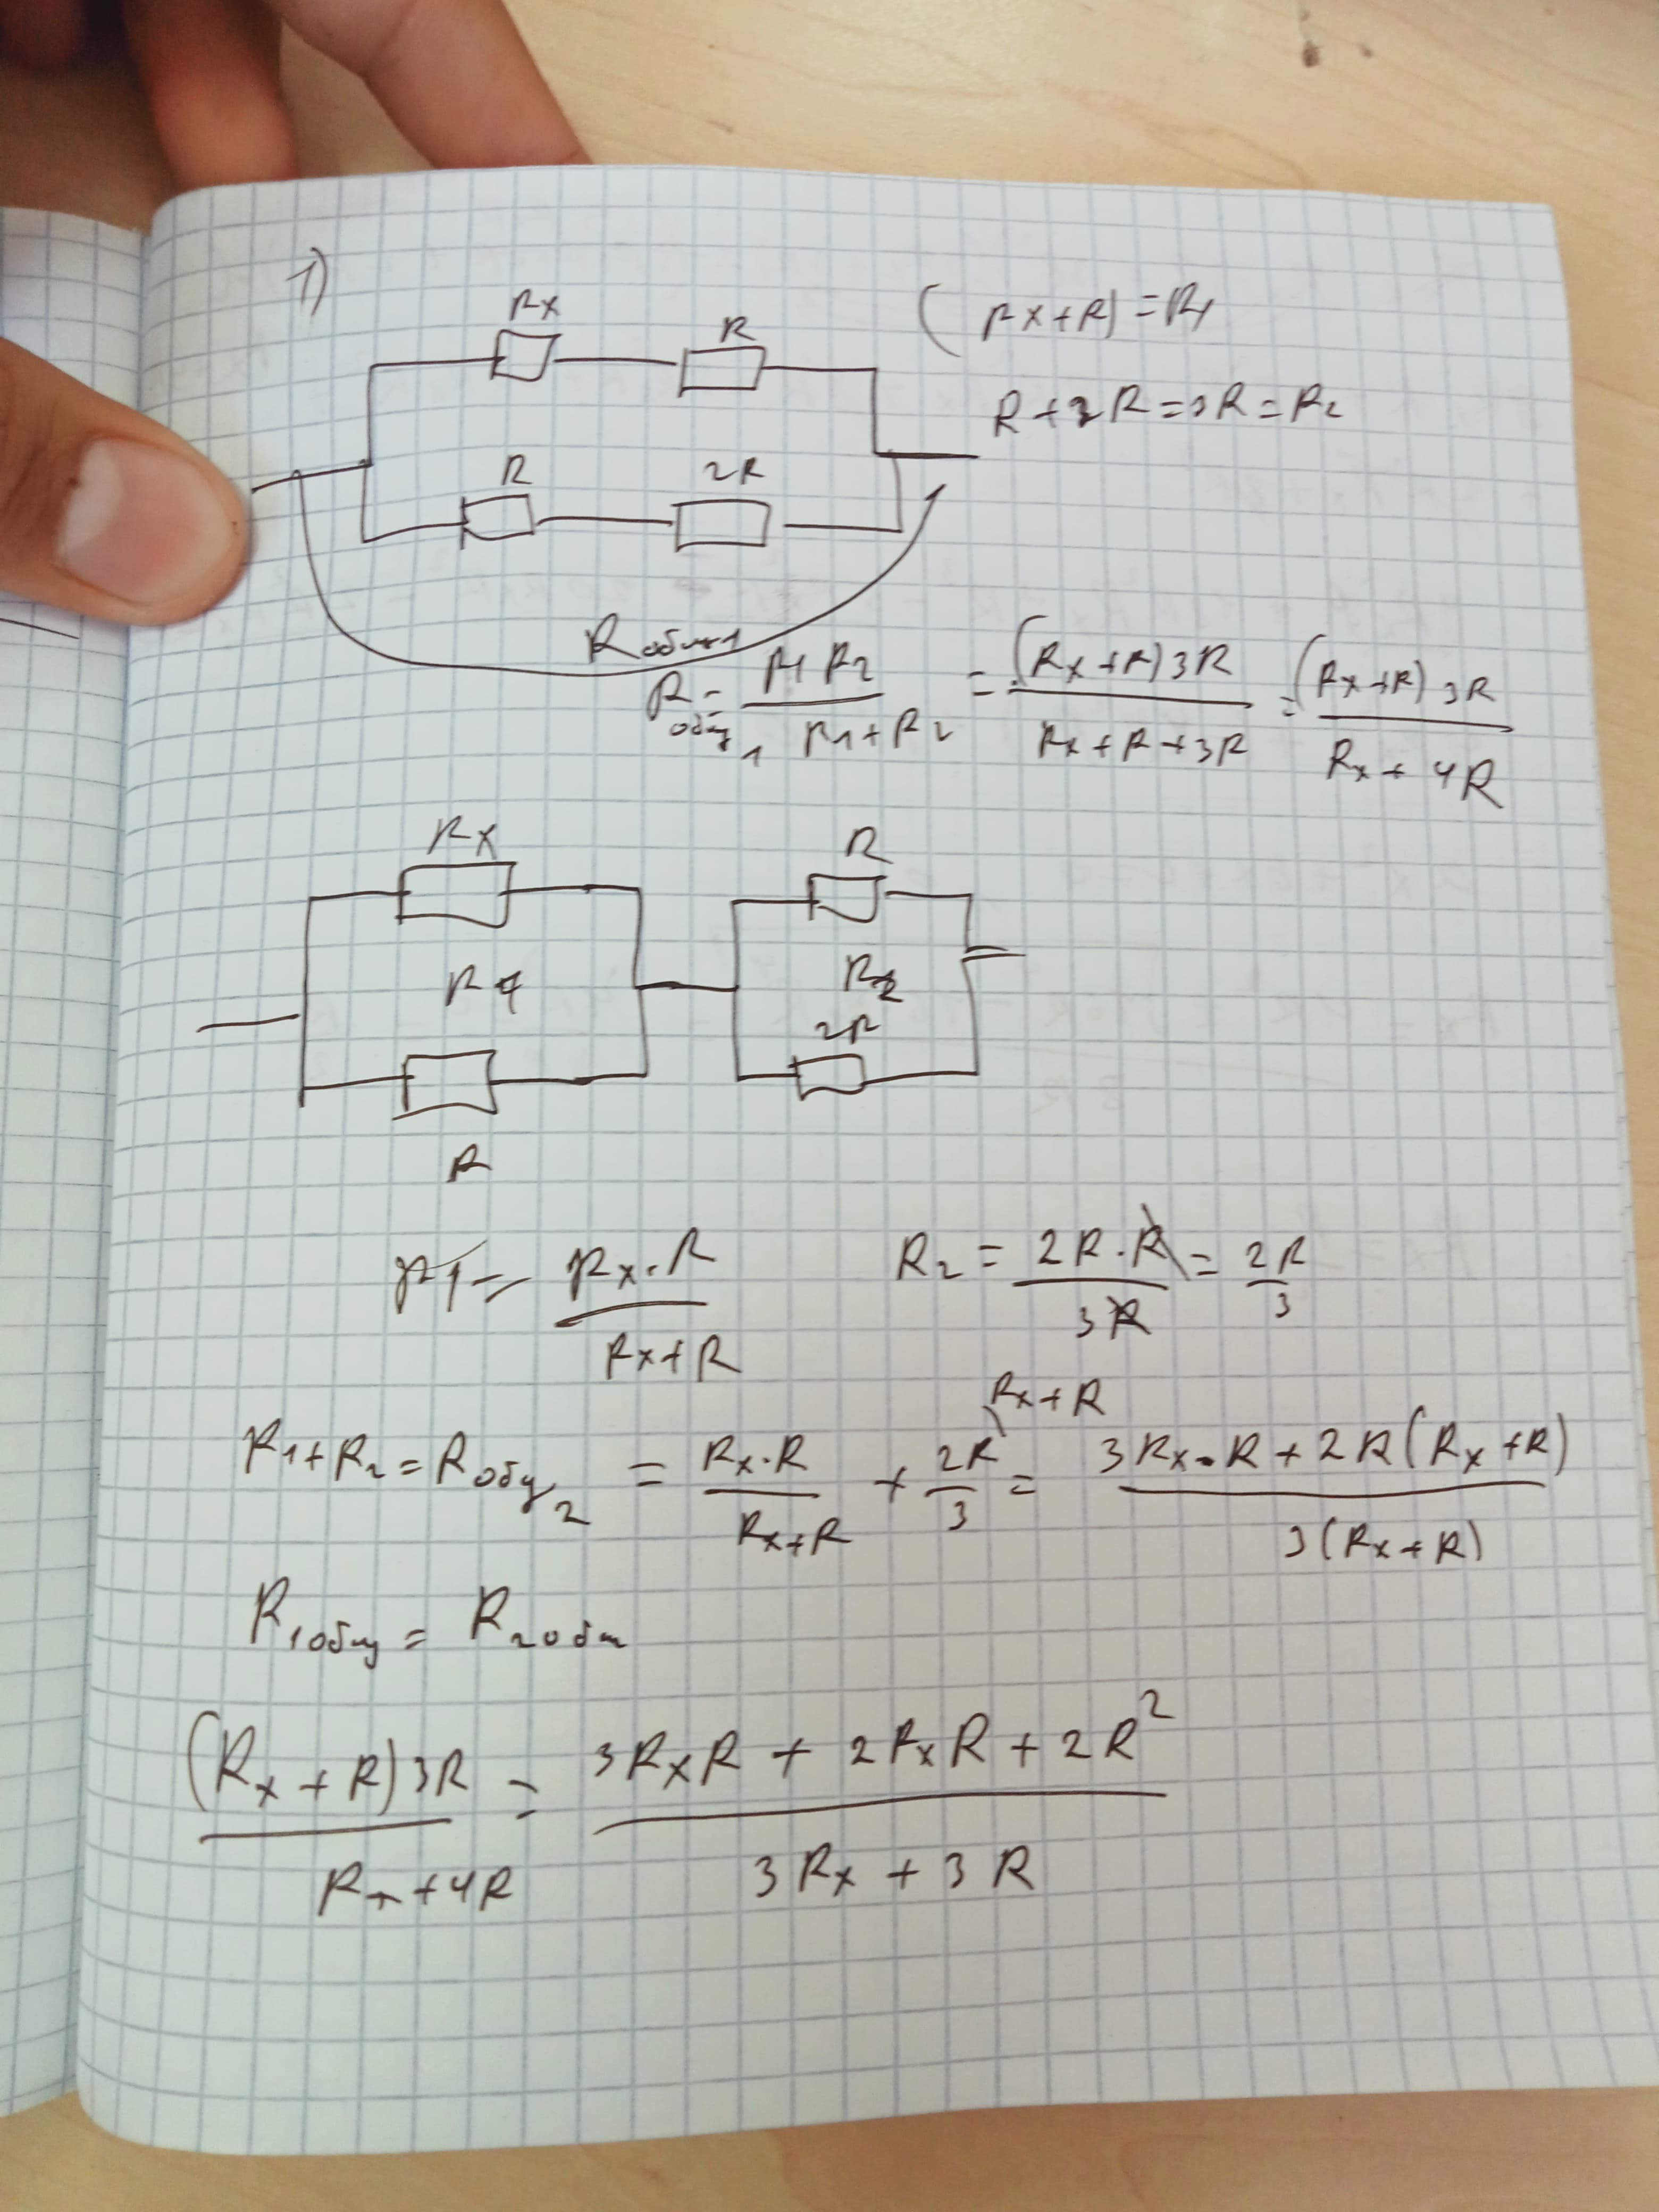 1)
Rx
R
(Rx+R)=R1
R+2R=3R=R2
R
2R
Rобщ1
Rобщ1 = R1R2 / R1+R2 = (Rx+R)3R / Rx+R+3R = (Rx+R)3R / Rx+4R
Rx
R
R1
R2
2R
R
R1 = Rx·R / Rx+R
R2 = 2R·R / 3R = 2R / 3
Rx+R
R1+R2=Rобщ2 = Rx·R / Rx+R + 2R / 3 = 3Rx·R+2R(Rx+R) / 3(Rx+R)
R1общ = R2общ
(Rx+R)3R / Rx+4R = 3RxR + 2RxR + 2R² / 3Rx+3R